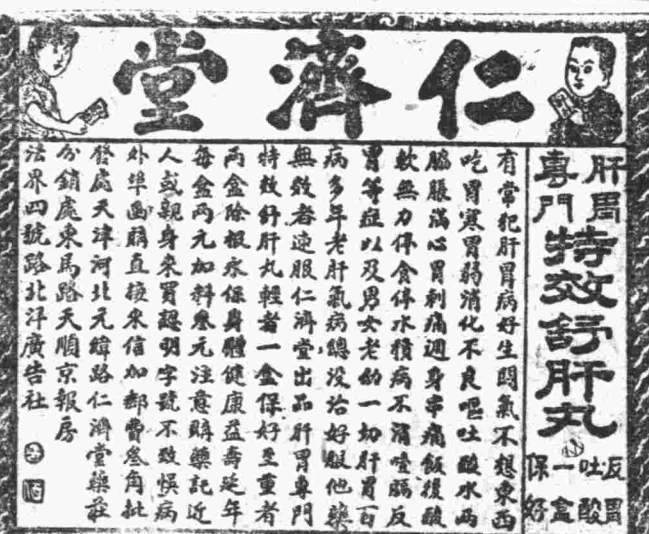 仁濟堂
肝胃專門
特效舒肝丸
反胃吐酸一盒保好
有常犯肝胃病好生悶氣不想東西
吃胃寒胃弱消化不良嘔吐酸水両
脇脹滿心胃刺痛週身串痛飯後酸
軟無力停食停水積病不消噎膈反
胃等症以及男女老幼一切肝胃百
病多年老肝氣病總没治好服他藥
無效者速服仁濟堂出品肝胃專門
特效舒肝丸輕者一盒保好至重者
両盒除根永保身體健康益壽延年
每盒両元加料叁元注意購藥記近
人或親身来買認明字號不致悞病
外埠函購直接來信加郵費叁角批
發處天津河北元緯路仁濟堂藥莊
分銷處東馬路天順京報房
法界四號路北洋廣告社